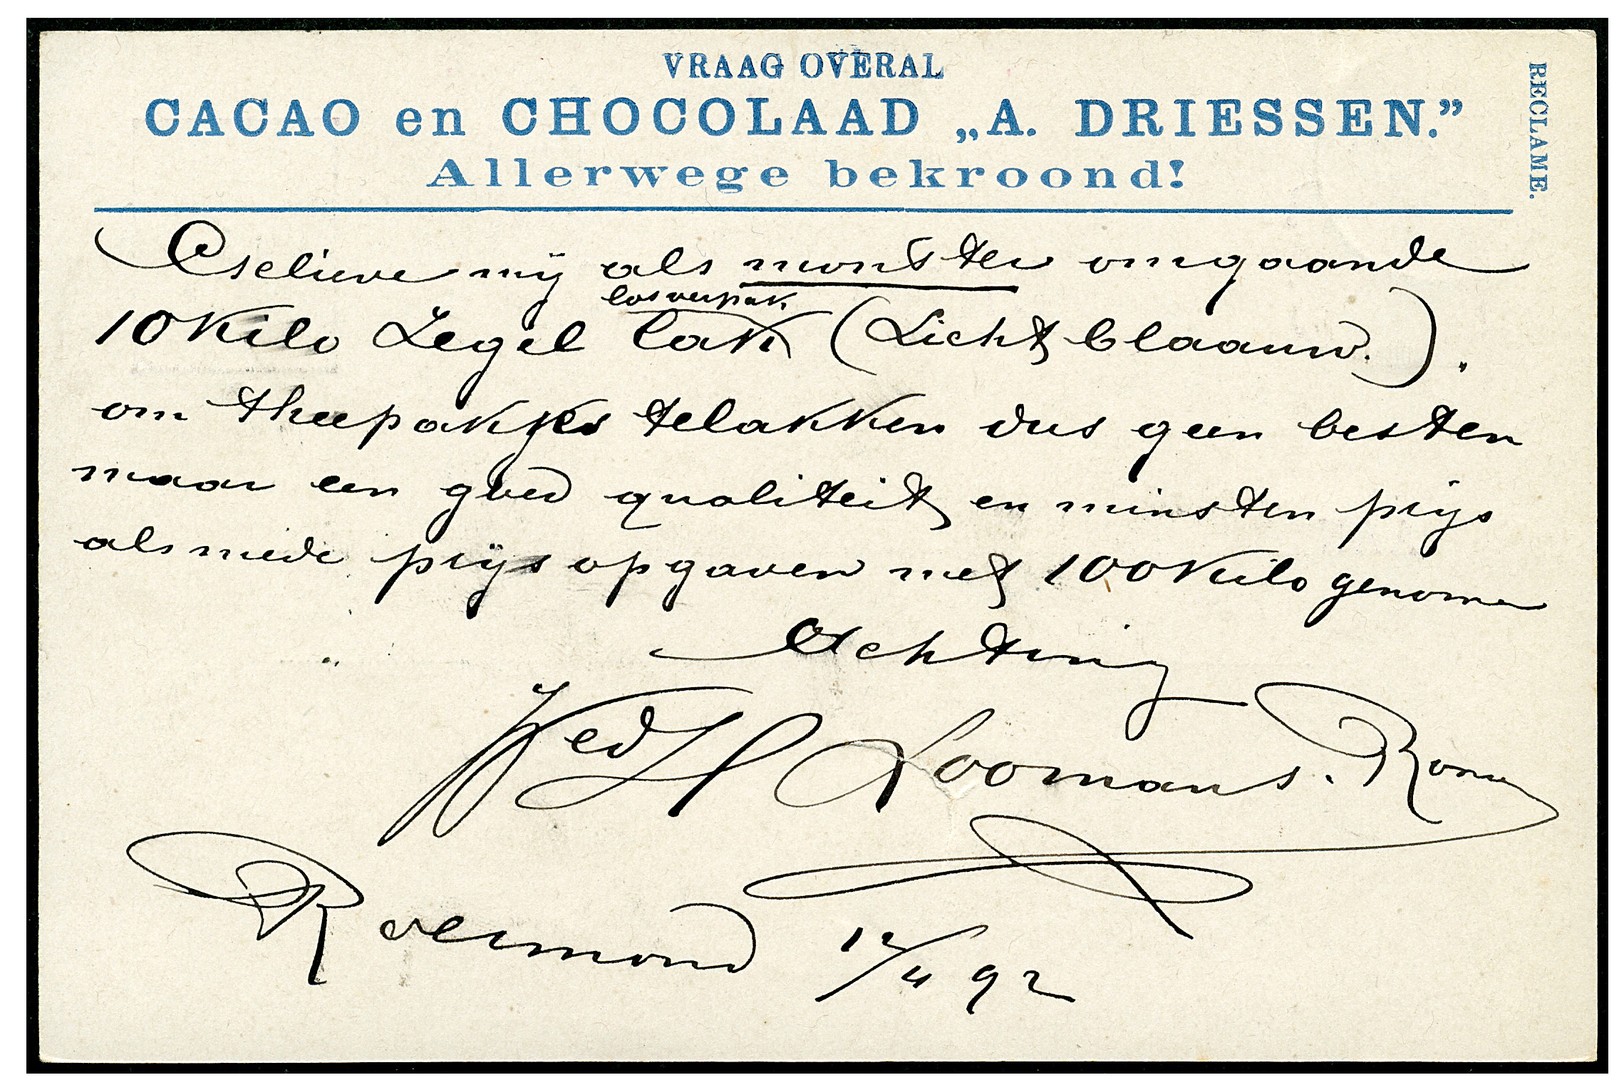 VRAAG OVERAL
CACAO en CHOCOLAAD „A. DRIESSEN.”
Allerwege bekroond!
RECLAME.
Gelieve mij als monster omgaande
losverpak
10 Kilo Zegel Lak (Licht blaauw.).
om theepakjes telakken dus geen besten
maar een goed qualiteit en minsten prijs
alsmede prijsopgaven met 100 Kilo genomen
Achting
Wed H Loomans.
Roermond 12/11 92